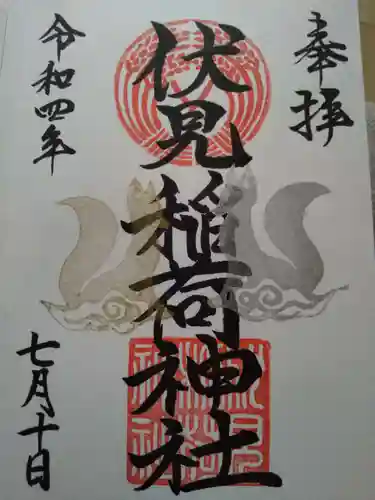 奉拝
伏見稲荷神社
令和四年
七月十日